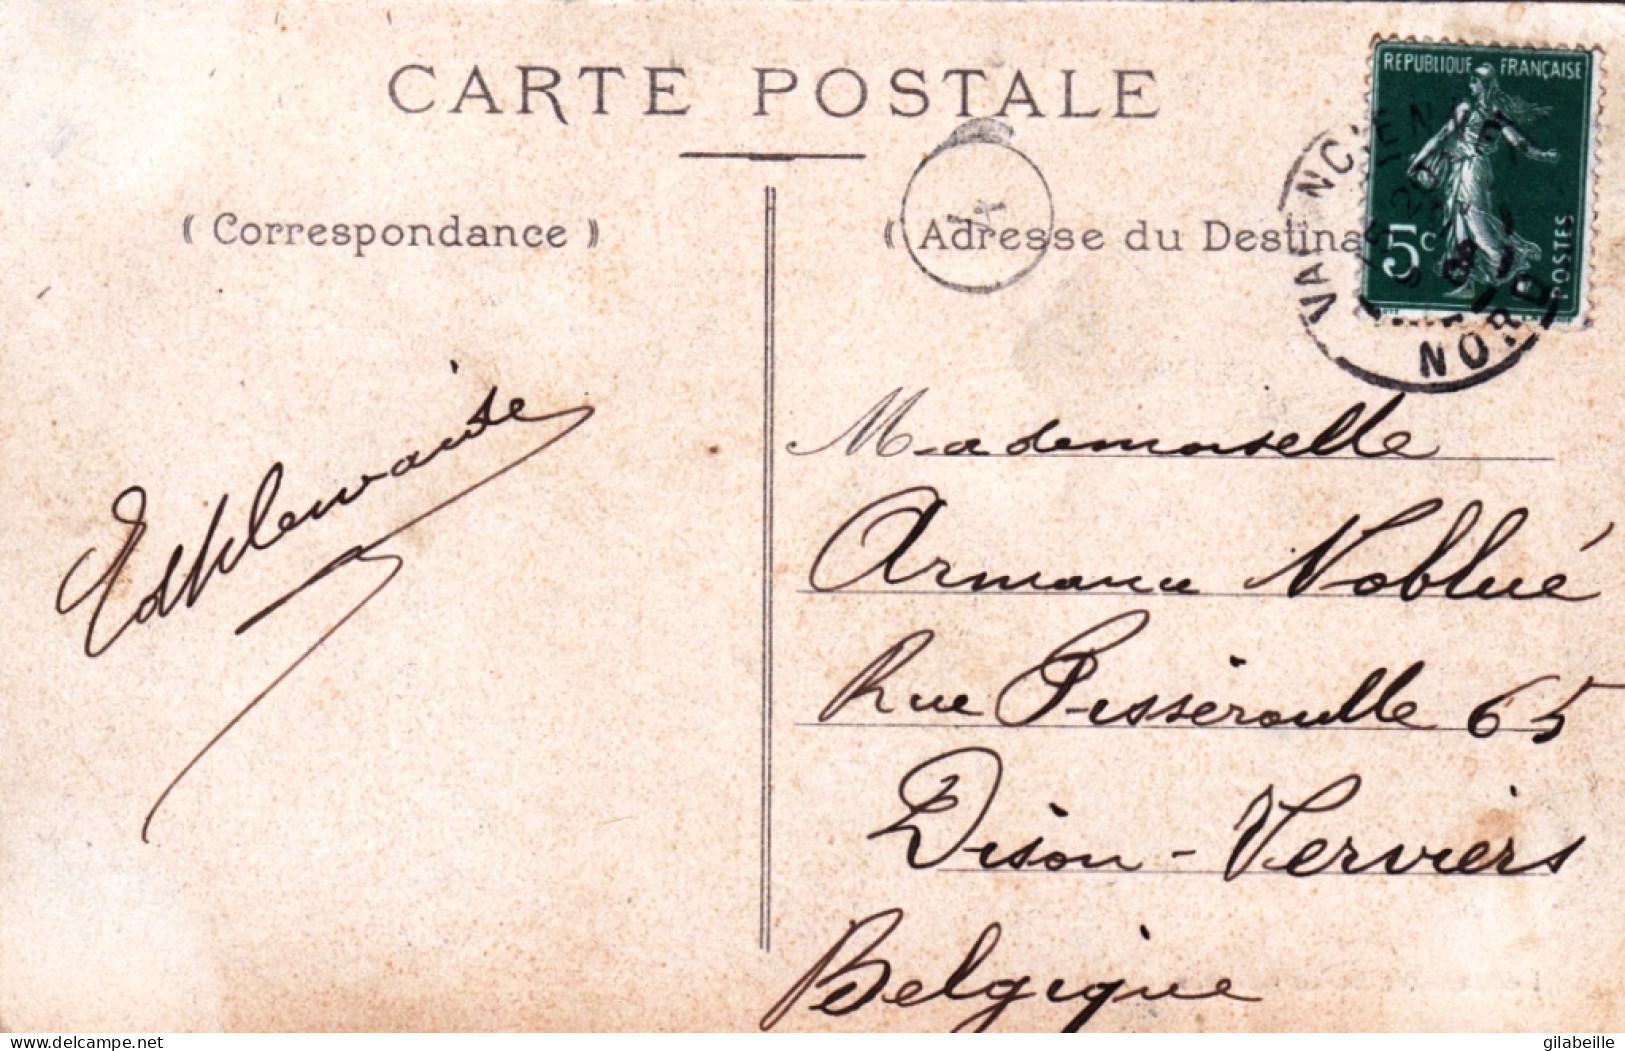 CARTE POSTALE
( Correspondance )
( Adresse du Destina
RÉPUBLIQUE FRANÇAISE
5c
POSTES
NORD
Mademoiselle
Noblué
Rue Pisseroulle 65
Dison - Verviers
Belgique
delcampe.net
gilabeille